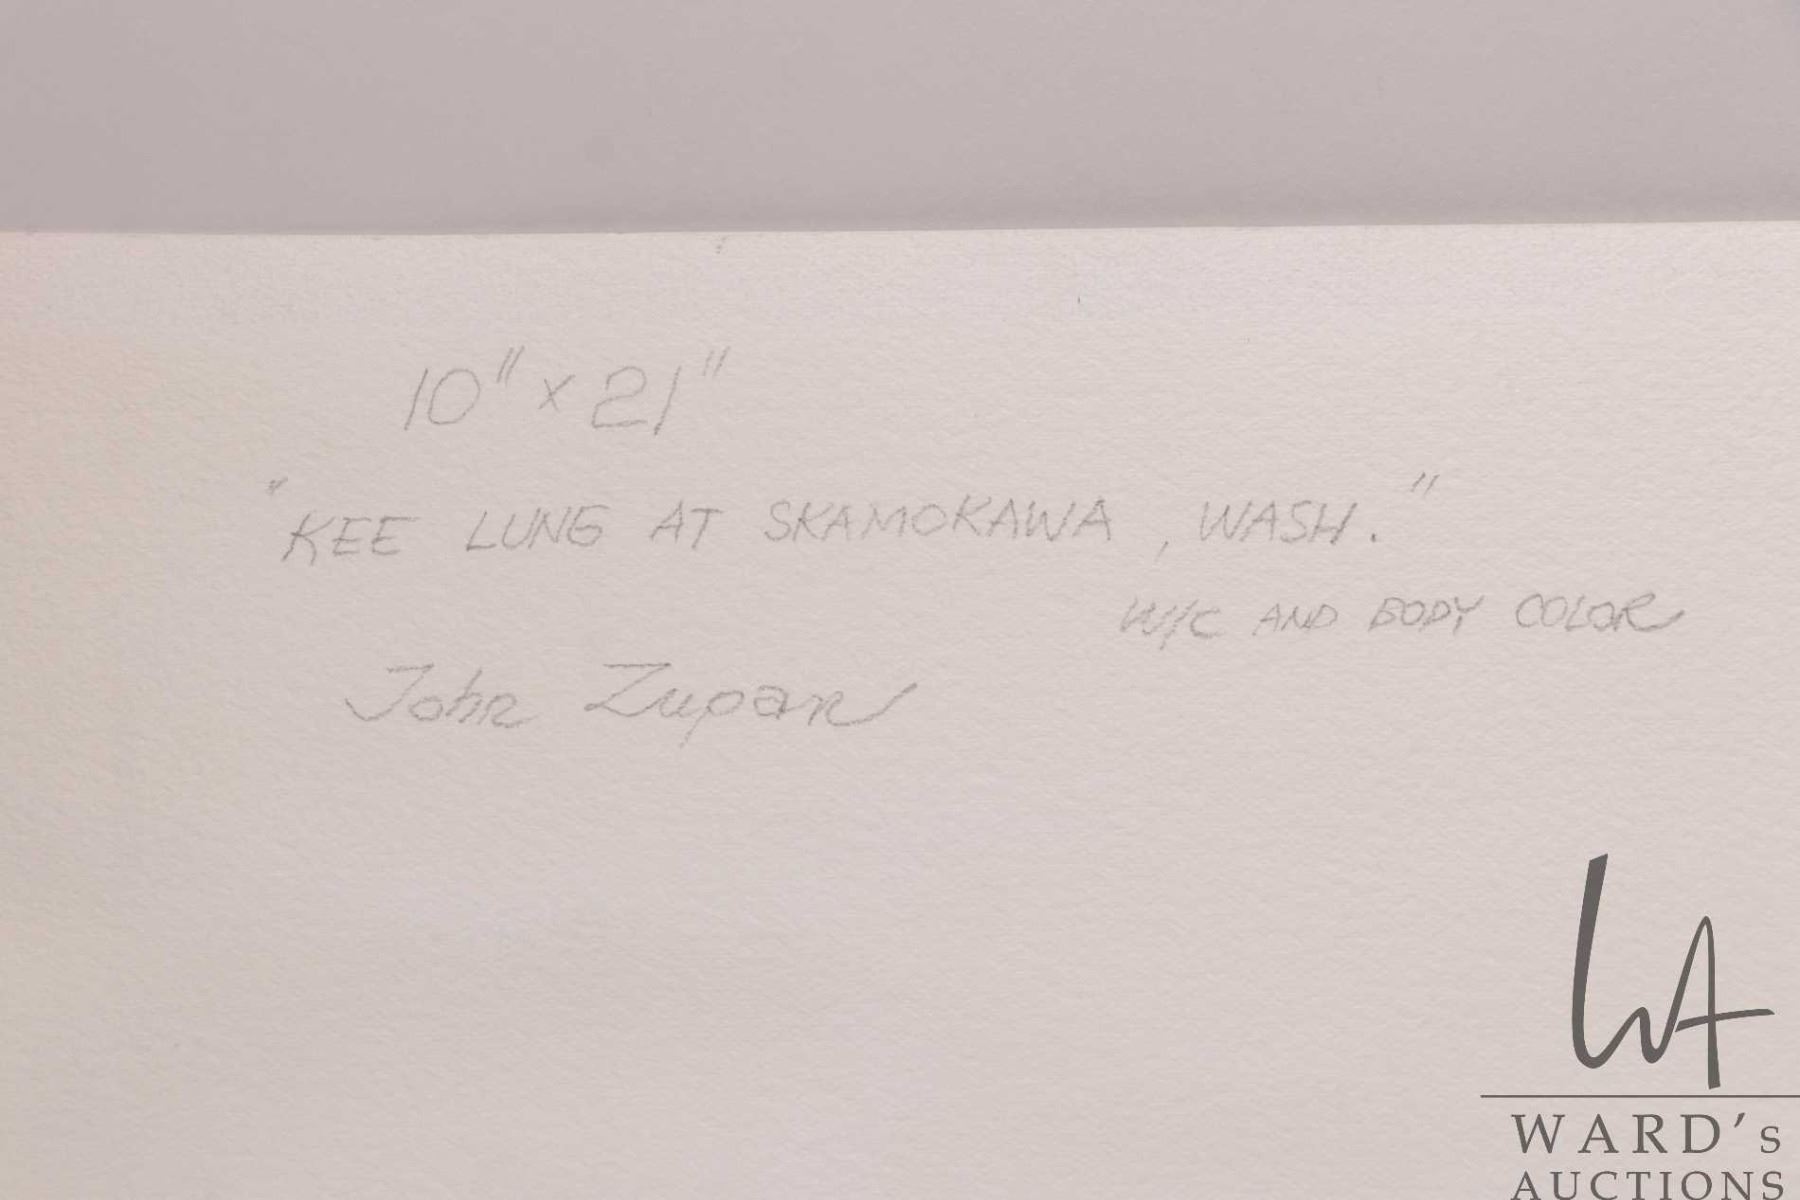 10" x 21"
"KEE LUNG AT SKAMOKAWA, WASH."
W/C AND BODY COLOR
John Zupan
WA
WARD's
AUCTIONS